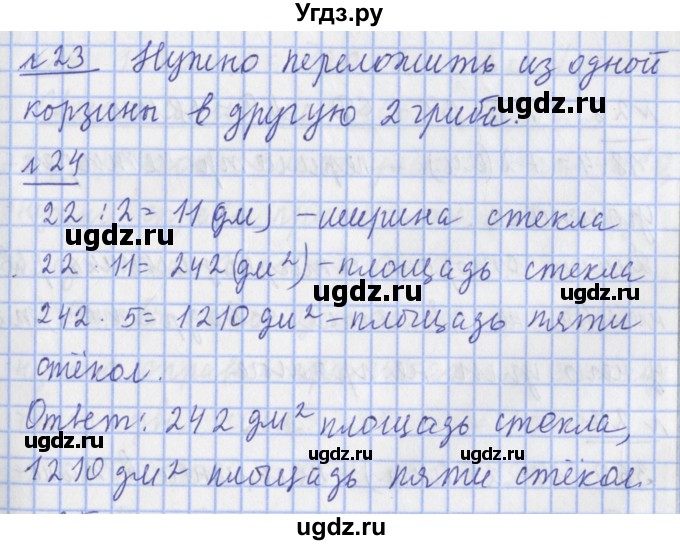 Угдз.ру
№23 Нужно переложить из одной
корзины в другую 2 гриба.
№24
22 : 2 = 11 (дм) – ширина стекла
22 · 11 = 242 (дм²) – площадь стекла
242 · 5 = 1210 дм² – площадь пяти
стёкол.
Ответ: 242 дм² площадь стекла,
1210 дм² площадь пяти стёкол.
ugdz.ru
ugdz.ru
ugdz.ru
ugdz.ru
ugdz.ru
ugdz.ru
ugdz.ru
ugdz.ru
ugdz.ru